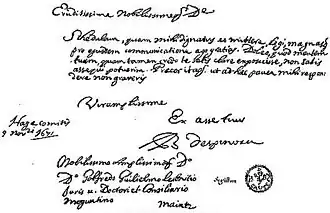 Eruditissime Nobilissimeqs De
Schedulam, quam mihi dignatus es mittere legi, magnasqs
pro ejusdem communicatione ago gratias. Doleo, quod mentem
tuam, quam tamen credo te satis clare exposuisse, non satis
assequi potuerim. Precor itaqs, ut ad haec pauca mihi respon
dere non graveris
Vir amplissime
Ex asse tuus
Hagae Comitis
9 novbr 1671
B despinoza
Nobilissimo Amplissimoqs Do
Do Gotfredo Guilielmo Leibnitio
Juris u. Doctori et Consiliario
Moguntino
Maintz
Sigillum